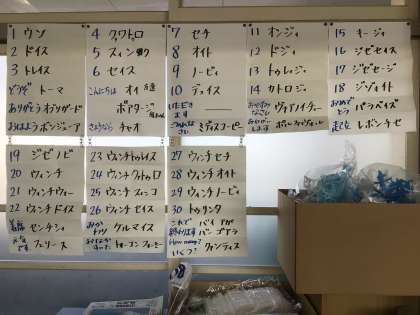 1 ウン
2 ドイス
3 トレイス
どうぞ トーマ
ありがとう オブリガード
おはよう ボンジーア
4 クワトロ
5 スィンコ
6 セイス
こんにちは オイ
ボアタージ
さようなら チャオ
7 セチ
8 オイト
9 ノービ
10 デェイス
いただきます
ごめんなさい ミディスコーピー
11 オンジィ
12 ドゥジィ
13 トゥレジィ
14 カトロジィ
おやすみなさい ヴォアノイチー
15 キージィ
16 ジゼセイス
17 ジゼセーチ
18 ジゾイト
おめでとう パラベイズ
起立 レボンチセ
19 ジゼノビ
20 ウィンチ
21 ウィンチウィー
22 ウィンチドイス
センチシ
フェリース
23 ウィンチトゥレイス
24 ウィンチクゥトゥロ
25 ウィンチスィンコ
26 ウィンチセイス
ケルマイス
27 ウィンチセチ
28 ウィンチオイト
29 ウィンチノービィ
30 トゥリンタ
これで終わります
How many?
いくつ? クァンティス